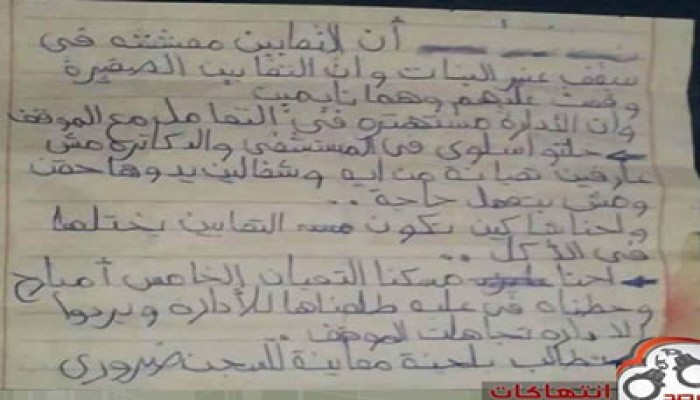 أن الثعابين معششه في
سقف عنبر البنات وان الثعابين الصغيرة
وقعت عليهم وهما نايمين
وان الأدارة مستهتره في التعامل مع الموقف
حالتو اسلوى في المستشفى والدكاتره مش
عارفين تعبانة من ايه وشغالين يدوها حقن
ومش بتعمل حاجة ..
واحنا شاكين يكون سم الثعابين بختلها
في الأكل ..
احنا مسكنا الثعبان الخامس أمبارح
وحطناه في علبه طلعناها للأدارة وبردوا
الادارة تجاهلت الموقف ..
نطالب بلجنة معاينة للسجن ضروري
انتهاكات